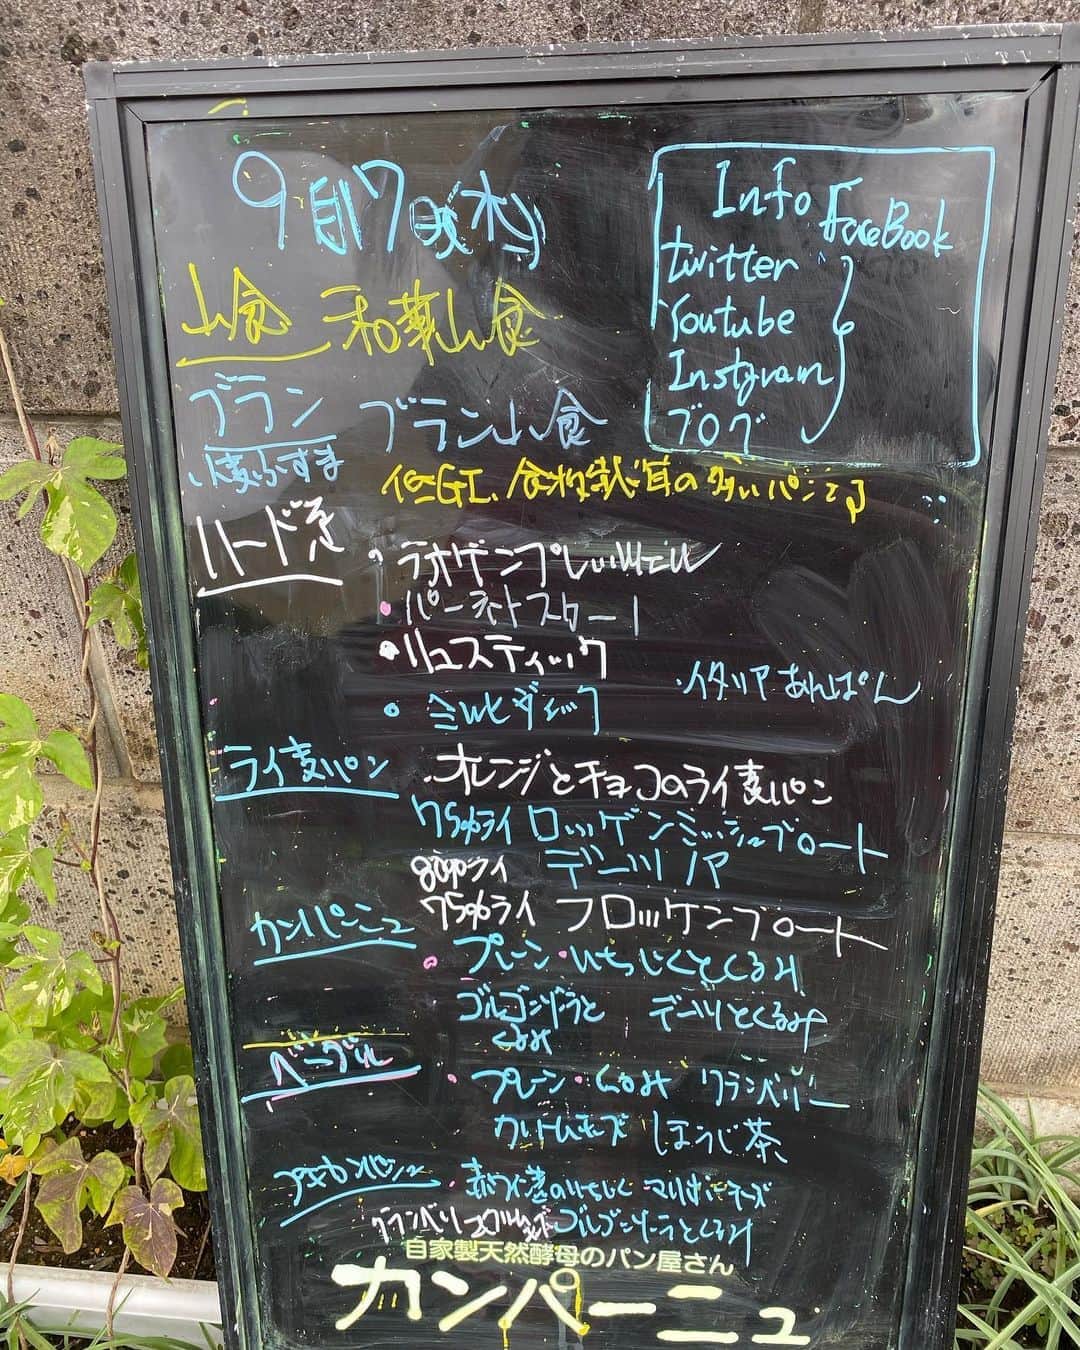 9月17日(木)
Info FaceBook
twitter
Youtube
Instgram
ブログ
山食 和華山食
ブラン ブラン山食
小麦ふすま
低GI、食物繊維の多いパンです
ハード系
・ラオゲンプレッツェル
・パーネトスカーノ
・リュスティック
・ミルヒヴェック ・イタリアあんぱん
ライ麦パン ・オレンジとチョコのライ麦パン
75%ライ ロッゲンミッシュブロート
80%ライ デーツノア
75%ライ フロッケンブロート
カンパーニュ
・プレーン・いちじくとくるみ
ゴルゴンゾーラと デーツとくるみ
くるみ
ベーグル
・プレーン・くるみ クランベリー
クリームチーズ ほうじ茶
プチカンパーニュ ・赤ワイン煮のいちじく マリボーチーズ
クランベリー ゴルゴンゾーラとくるみ
自家製天然酵母のパン屋さん
カンパーニュ